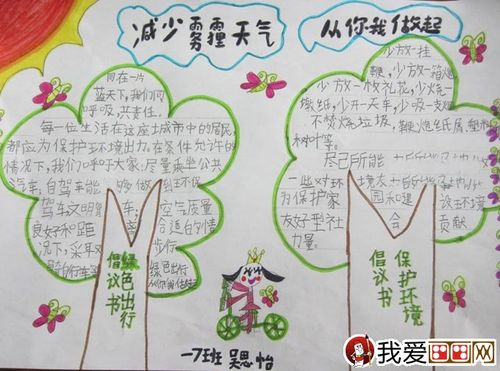 减少雾霾天气
从你我做起
同在一片
蓝天下,我们同
呼吸,共责任,
每一位生活在这座城市中的居民,
都应为保护环境出力,在条件允许的
情况下,我们呼吁大家:尽量乘坐公共
汽车,自驾车能够做到环保
驾车文明
车;
空气质量
良好和距
合适的情
况下,采
步行
骑自行车等
绿色出行
从你我做起
绿色出行
倡议书
少放一挂
鞭,少放一箱炮,
少放一枚礼花,少烧一
墩纸,少开一天车,少吸一支烟,
不焚烧垃圾,鞭炮纸屑,塑料
树叶等。
尽己所能
一些对环境友
为保护家园永建
设环境
友好型社会
贡献
力量
保护环境
倡议书
一7班 吴思怡
我爱画画网